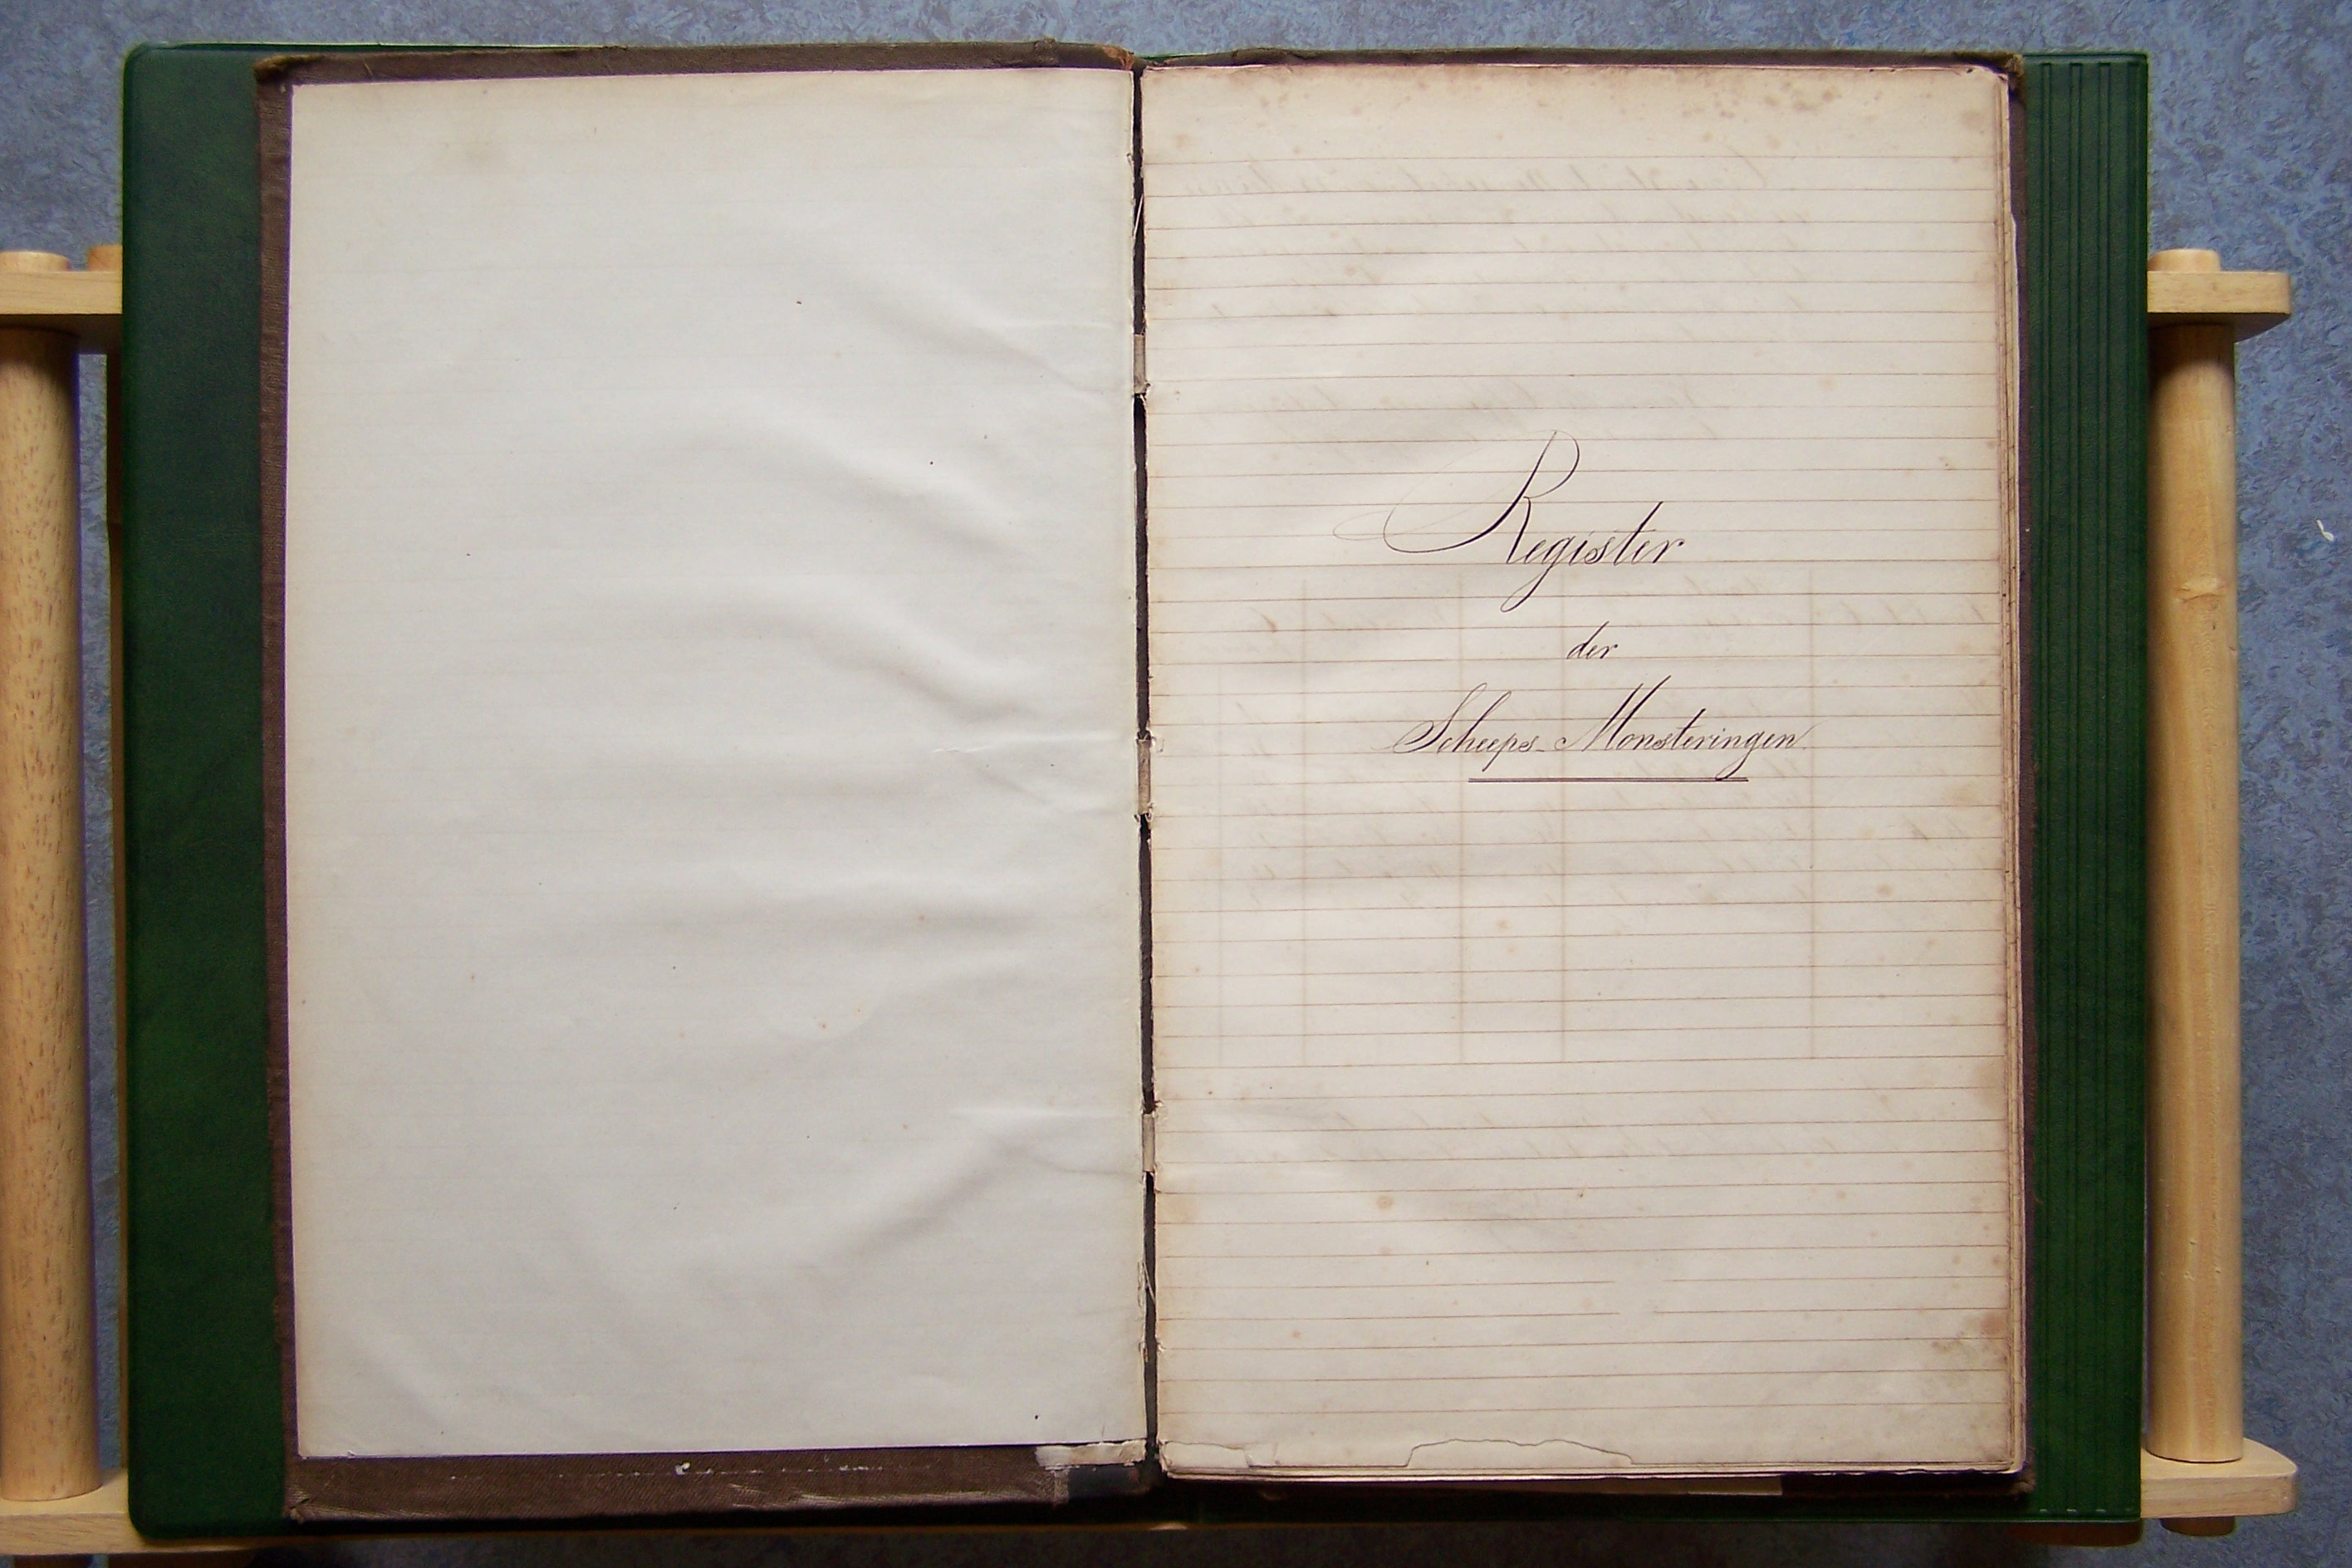 Register
der
Scheeps-Monsteringen.